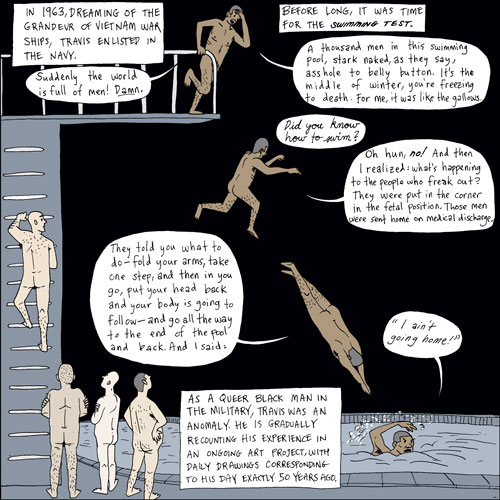 IN 1963, DREAMING OF THE
GRANDEUR OF VIETNAM WAR
SHIPS, TRAVIS ENLISTED IN
THE NAVY.
Suddenly the world
is full of men! Damn.
BEFORE LONG, IT WAS TIME
FOR THE SWIMMING TEST.
A thousand men in this swimming
pool, stark naked, as they say,
asshole to belly button. It's the
middle of winter, you're freezing
to death. For me, it was like the gallows.
Did you know
how to swim?
Oh hun, no! And then
I realized: what's happening
to the people who freak out?
They were put in the corner
in the fetal position. Those men
were sent home on medical discharge.
They told you what to
do—fold your arms, take
one step, and then in you
go, put your head back
and your body is going to
follow—and go all the way
to the end of the pool
and back. And I said:
"I ain't
going home!"
AS A QUEER BLACK MAN IN
THE MILITARY, TRAVIS WAS AN
ANOMALY. HE IS GRADUALLY
RECOUNTING HIS EXPERIENCE IN
AN ONGOING ART PROJECT, WITH
DAILY DRAWINGS CORRESPONDING
TO HIS DAY EXACTLY 50 YEARS AGO.